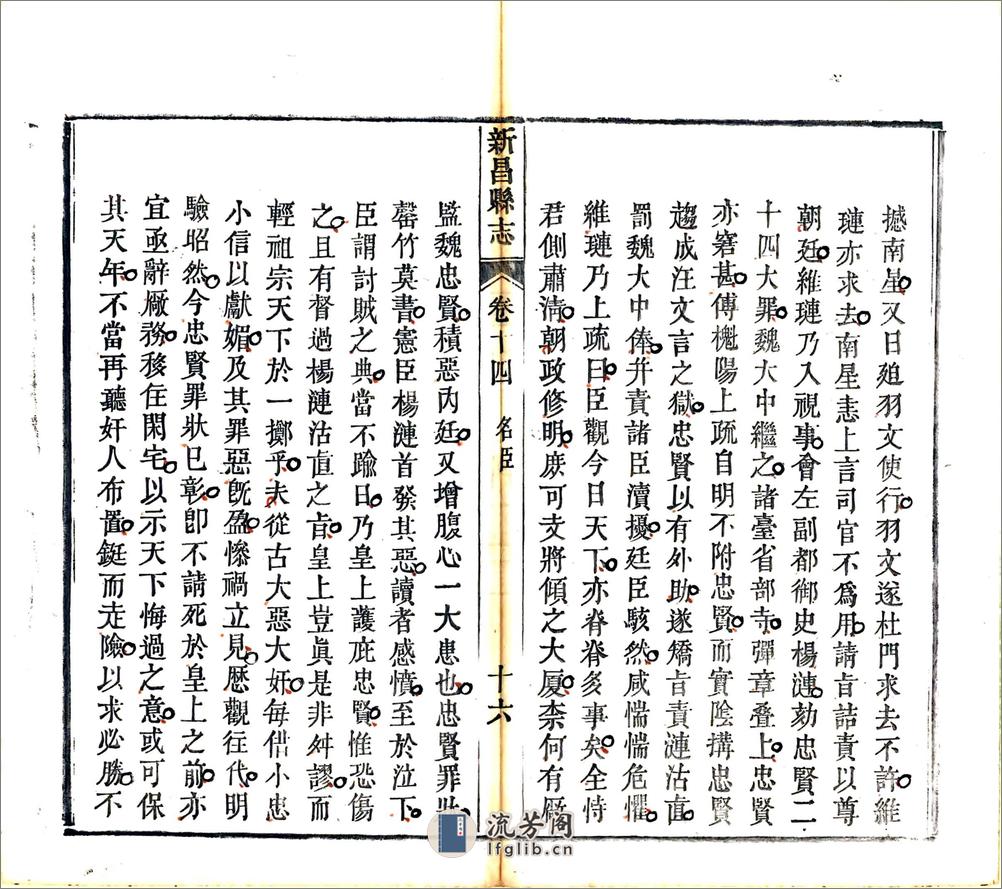 撼南星又日廹羽文使行羽文遂杜門求去不許維
璉亦求去南星恚上言司官不爲用請㫖詰責以尊
朝廷維璉乃入視事會左副都御史楊漣劾忠賢二
十四大罪魏大中繼之諸臺省部寺彈章叠上忠賢
亦窘甚傅櫆陽上疏自明不附忠賢而實陰搆忠賢
趨成汪文言之獄忠賢以有外助遂矯㫖責漣沽直
罰魏大中俸幷責諸臣瀆擾廷臣駭然咸惴惴危懼
維璉乃上疏曰臣觀今日天下亦脊脊多事矣全恃
君側肅淸朝政修明庶可支將傾之大厦柰何有厰
新昌縣志
卷十四
名臣
十六
監魏忠賢積惡內廷又增腹心一大患也忠賢罪狀
罄竹莫書憲臣楊漣首發其惡讀者感憤至於泣下
臣謂討賊之典當不踰日乃皇上護庇忠賢惟恐傷
之且有督過楊漣沽直之㫖皇上豈眞是非舛謬而
輕祖宗天下於一擲乎夫從古大惡大奸每借小忠
小信以獻媚及其罪惡旣盈慘禍立見歷觀往代明
驗昭然今忠賢罪狀已彰卽不請死於皇上之前亦
宜亟辭厰務移住閑宅以示天下悔過之意或可保
其天年不當再聽奸人布置鋌而走險以求必勝不
流芳閣
lfglib.cn